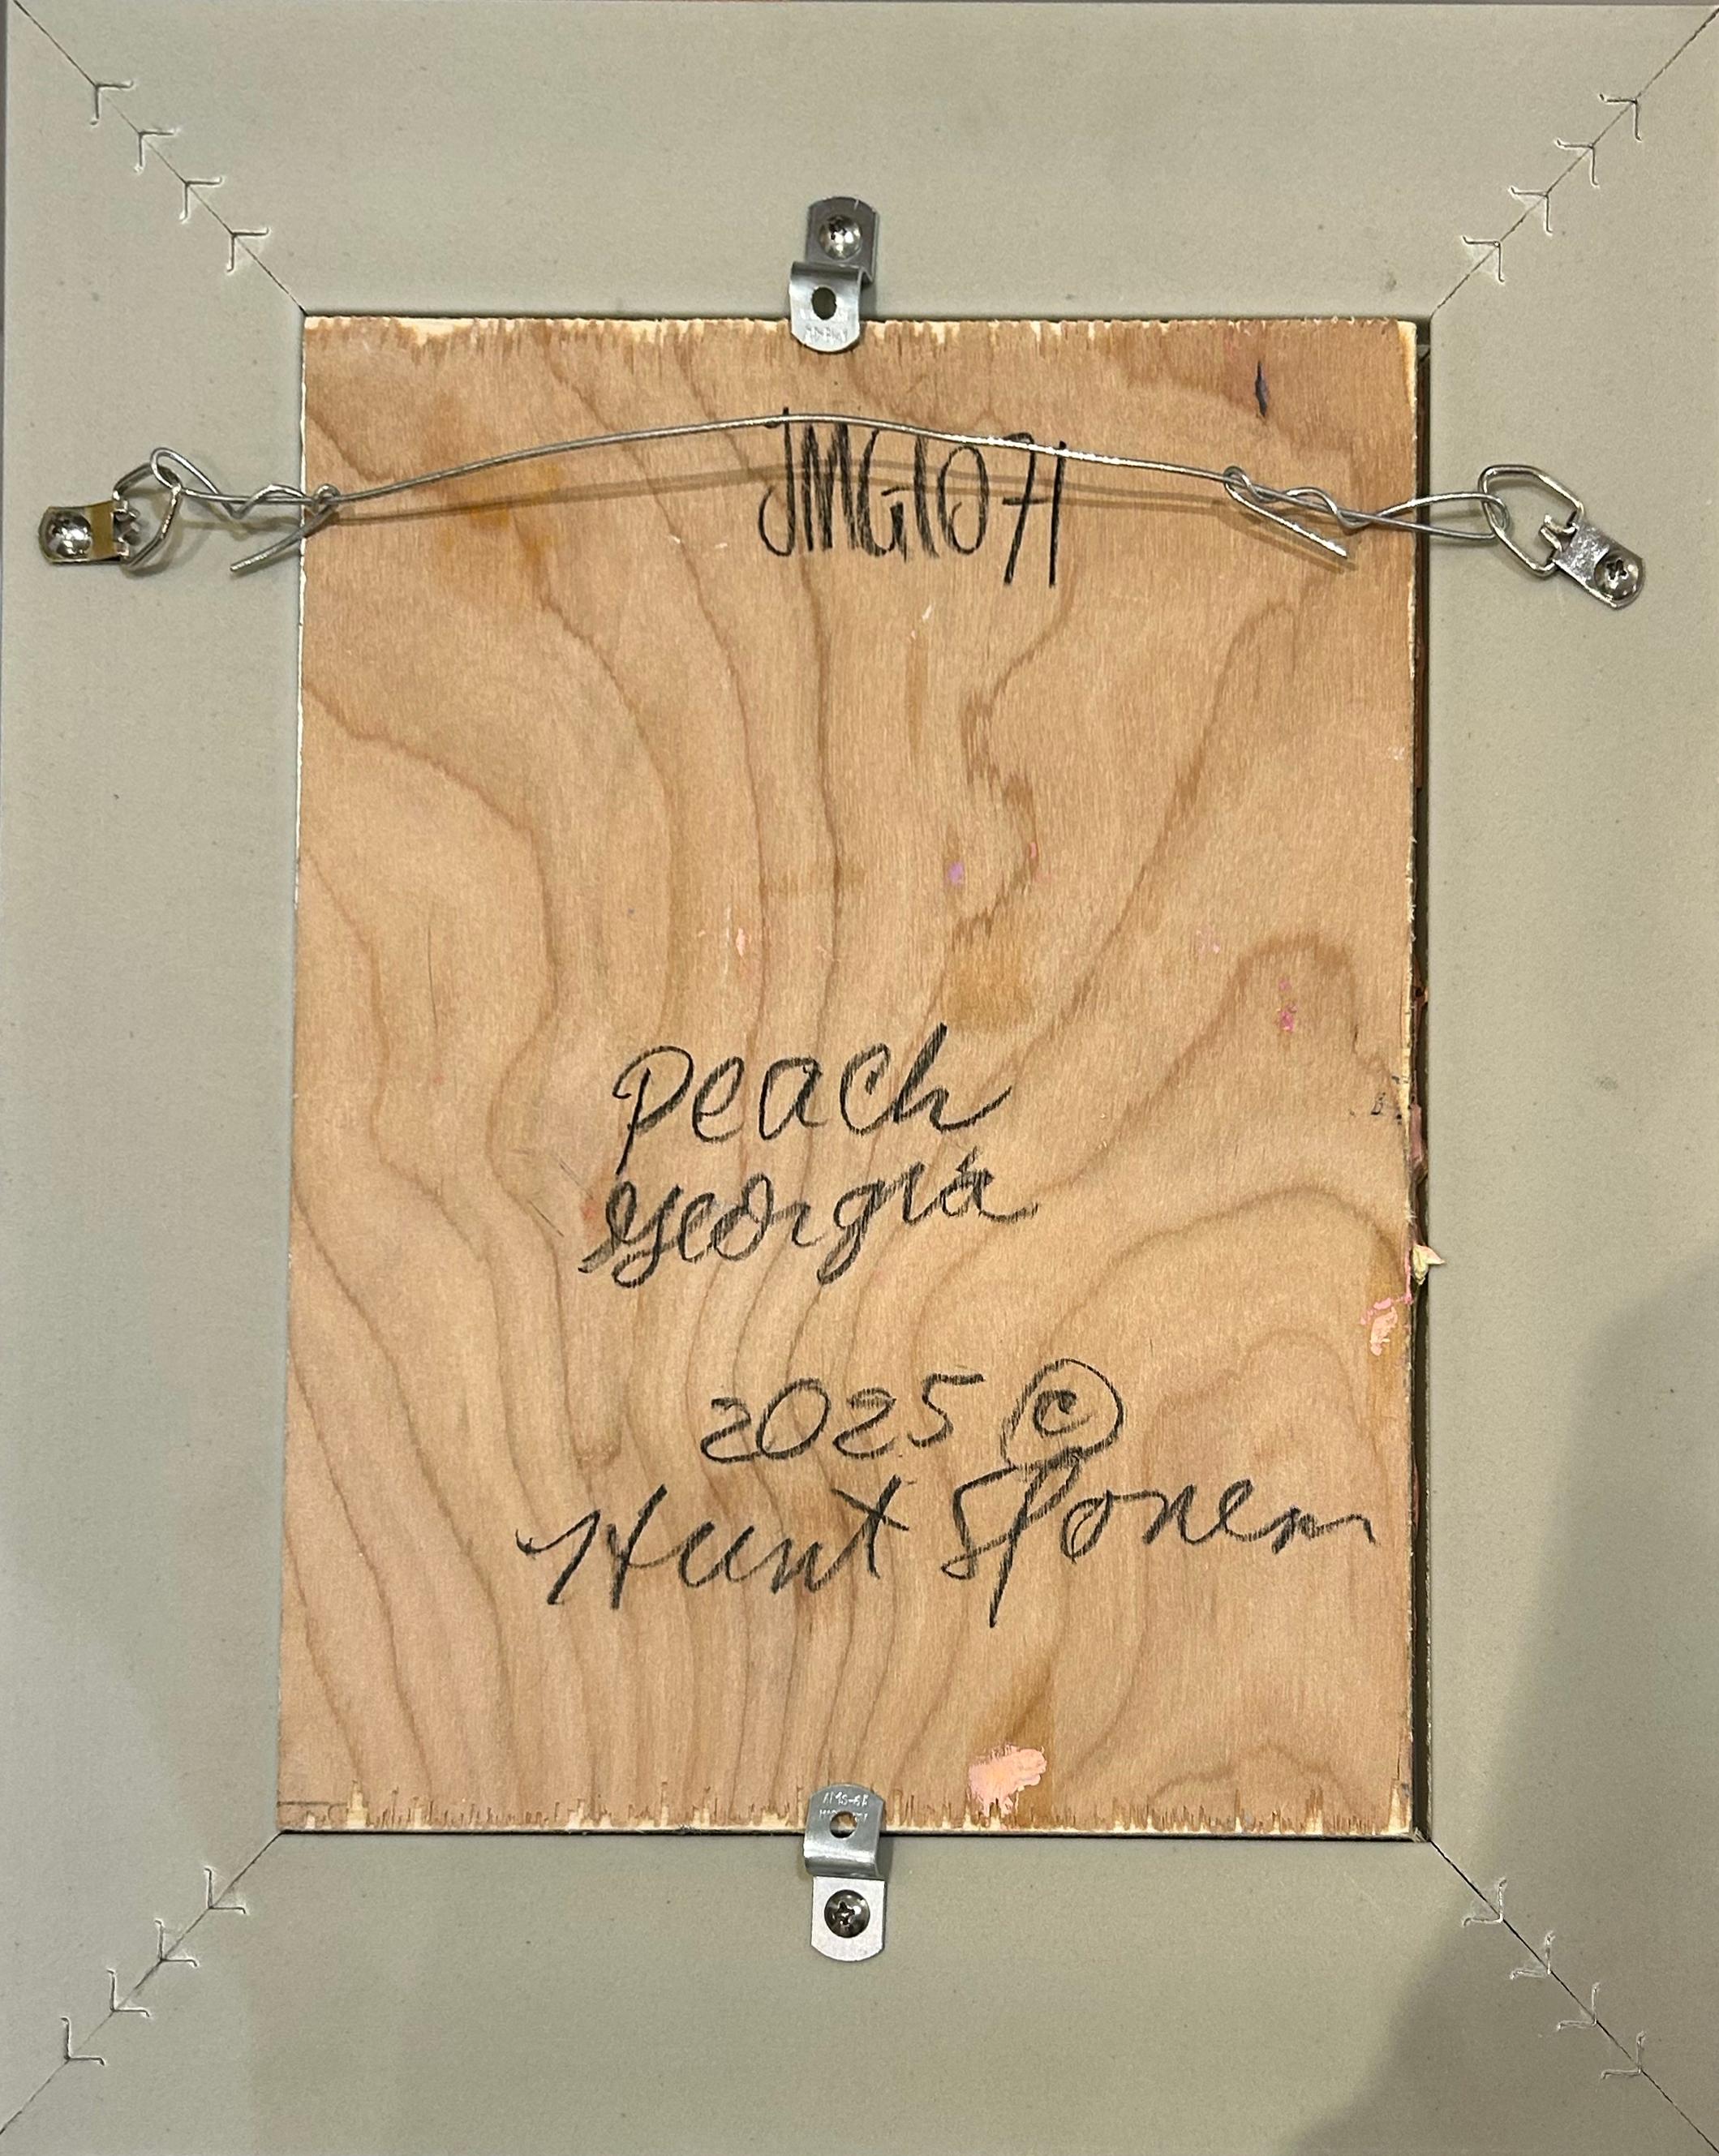 JMG1071
Peach
Georgia
2025 ©
Hunt Slonem